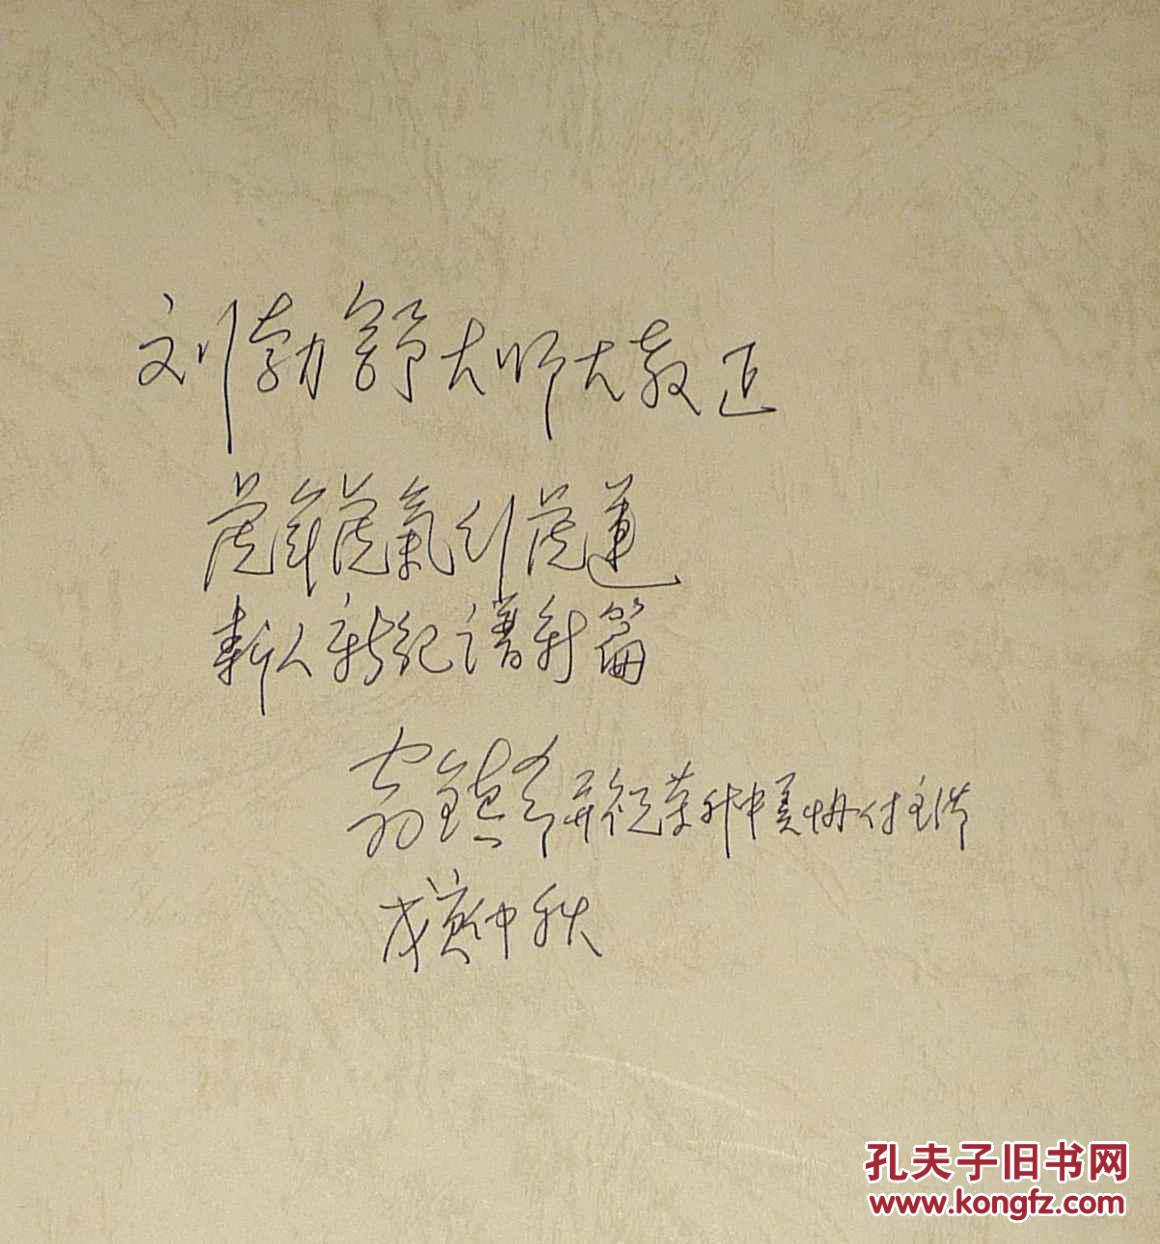 刘勃舒大师大教正
虎年虎气引虎运
新人新纪谱新篇
翁镇 并祝荣升中美协付主席
戊寅仲秋
孔夫子旧书网
www.kongfz.com